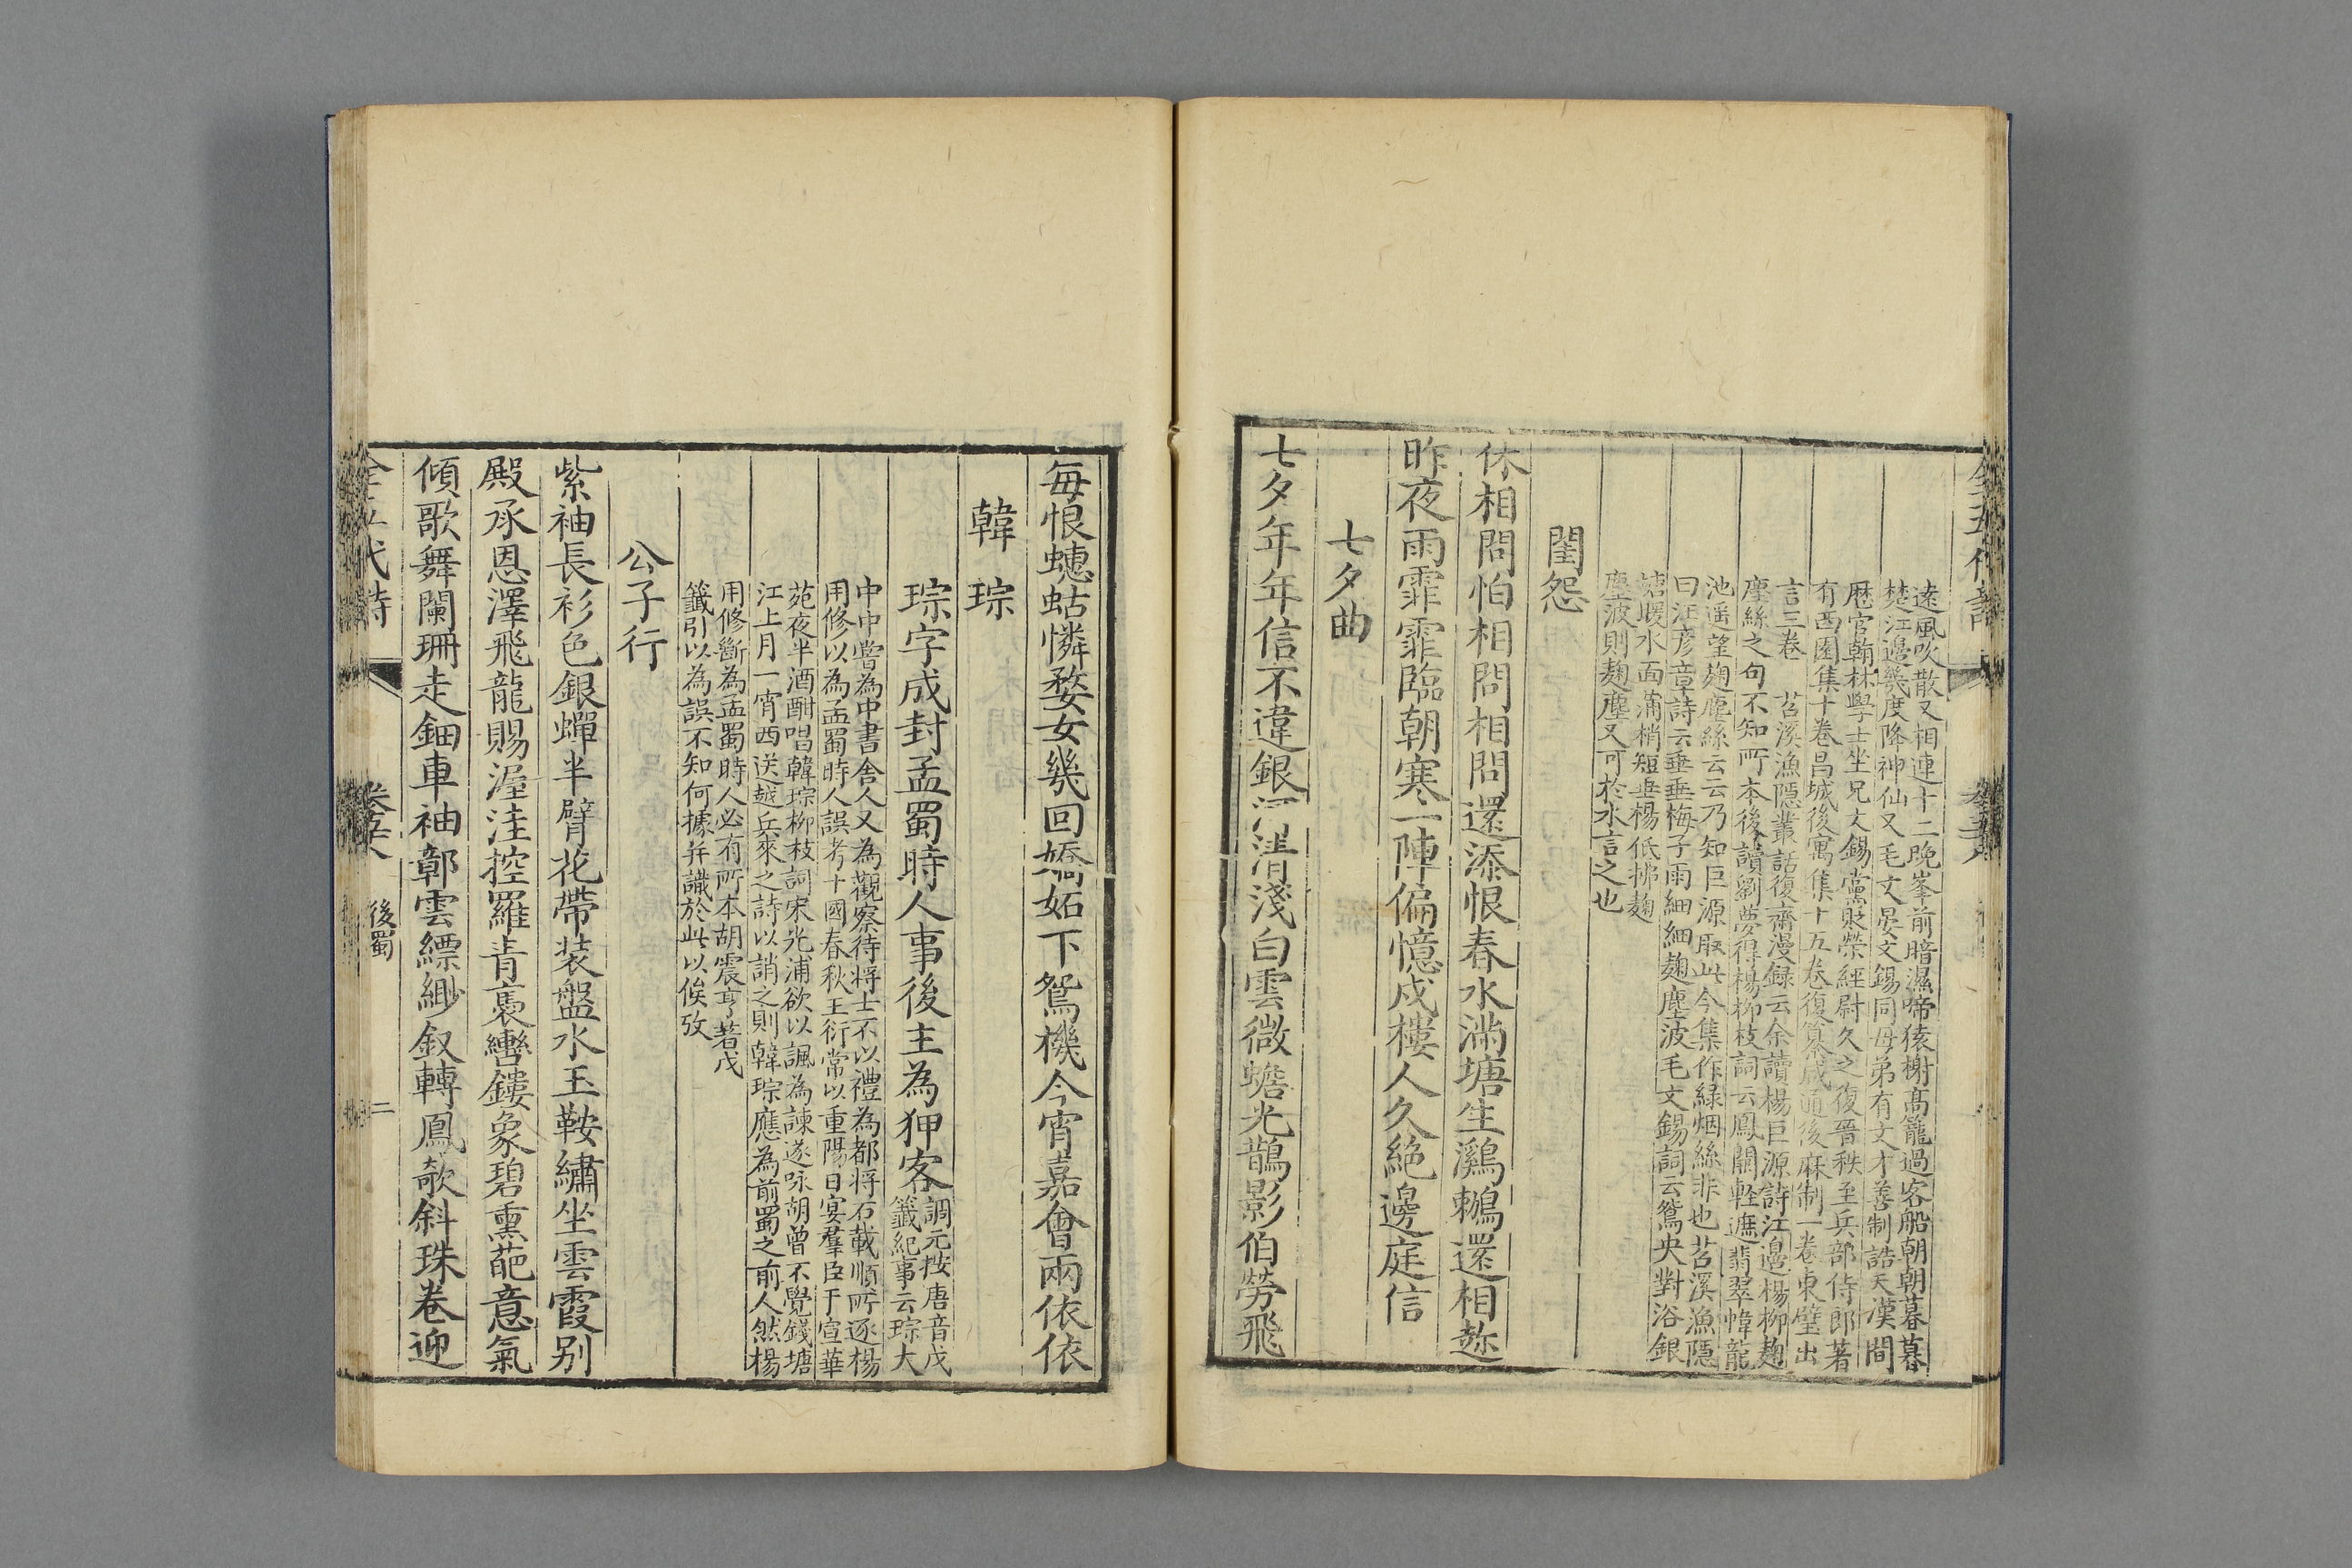 遠風吹散又相連十二晚峯前暗濕啼猿榭高籠過客船朝朝暮暮
楚江邊幾度降神仙又毛文晏文錫同母弟有文才善制誥天漢間
歷官翰林學士坐兄文錫黨貶榮經尉久之復晉秩至兵部侍郎著
有西園集十卷昌城後寓集十五卷復纂咸通後麻制一卷東壁出
言三卷 苕溪漁隱叢話復齋漫録云余讀楊巨源詩江邊楊柳麹
塵絲之句不知所本後讀劉夢得楊柳枝詞云鳳闕輕遮翡翠幃龍
池遥望麹塵絲云云乃知巨源取此今集作緑烟絲非也苕溪漁隱
曰汪彦章詩云垂垂梅子雨細細麹塵波毛文錫詞云鴛央對浴銀
塘暖水面蒲梢短垂楊低拂麹
塵波則麹塵又可於水言之也
閨怨
休相問怕相問相問還添恨春水滿塘生鸂鶒還相趂
昨夜雨霏霏臨朝寒一陣偏憶戍樓人久絶邊庭信
七夕曲
七夕年年信不違銀河清淺白雲微蟾光鵲影伯勞飛
每恨蟪蛄憐婺女幾回嬌妬下鴛機今宵嘉會兩依依
韓琮
琮字成封孟蜀時人事後主為狎客
調元按唐音戊
籤紀事云琮大
中中嘗為中書舍人又為觀察待將士不以禮為都將石載順所逐楊
用修以為孟蜀時人誤考十國春秋王衍常以重陽日宴羣臣于宣華
苑夜半酒酣唱韓琮柳枝詞宋光浦欲以諷為諫遂咏胡曾不覺錢塘
江上月一宵西送越兵來之詩以誚之則韓琮應為前蜀之前人然楊
用修斷為孟蜀時人必有所本胡震亨著戊
籤引以為誤不知何據并識於此以俟攷
公子行
紫袖長衫色銀蟬半臂花帶装盤水玉鞍繡坐雲霞别
殿承恩澤飛龍賜渥洼控羅青褭轡鏤象碧熏葩意氣
傾歌舞闌珊走鈿車袖鄣雲縹緲釵轉鳳欹斜珠卷迎
後蜀
二